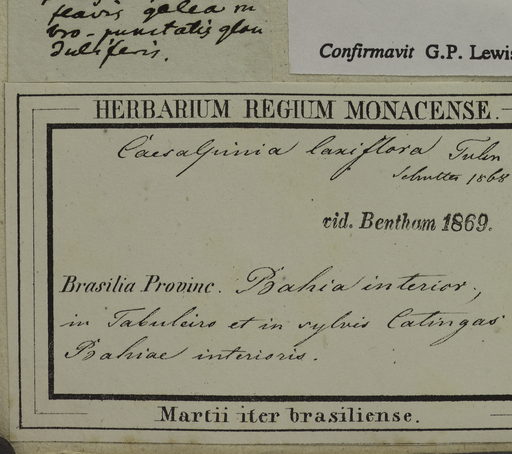 flavis galea ru
bro-punctatis glan
duliferis.
Confirmavit G.P. Lewis
HERBARIUM REGIUM MONACENSE.
Caesalpinia laxiflora Tulsn
1868
vid. Bentham 1869.
Brasilia Provinc. Bahia interior,
in Tabuleiro et in sylvis Catingas
Bahiae interioris.
Martii iter brasiliense.